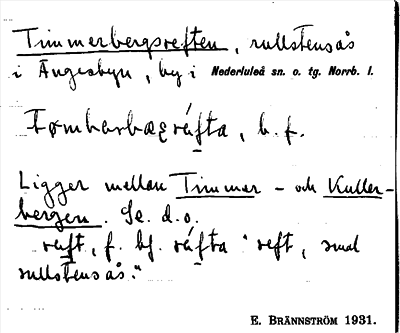 Timmerbergsreften, rullstensås
i Ängesbyn, by i Nederluleå sn. o. tg. Norrb. l.
b. f.
Ligger mellan Timmer- och Kuller-
bergen. Se. d. o.
raft, f. bf. ráfta "reft, smal
rullstensås."
E. BRÄNNSTRÖM 1931.